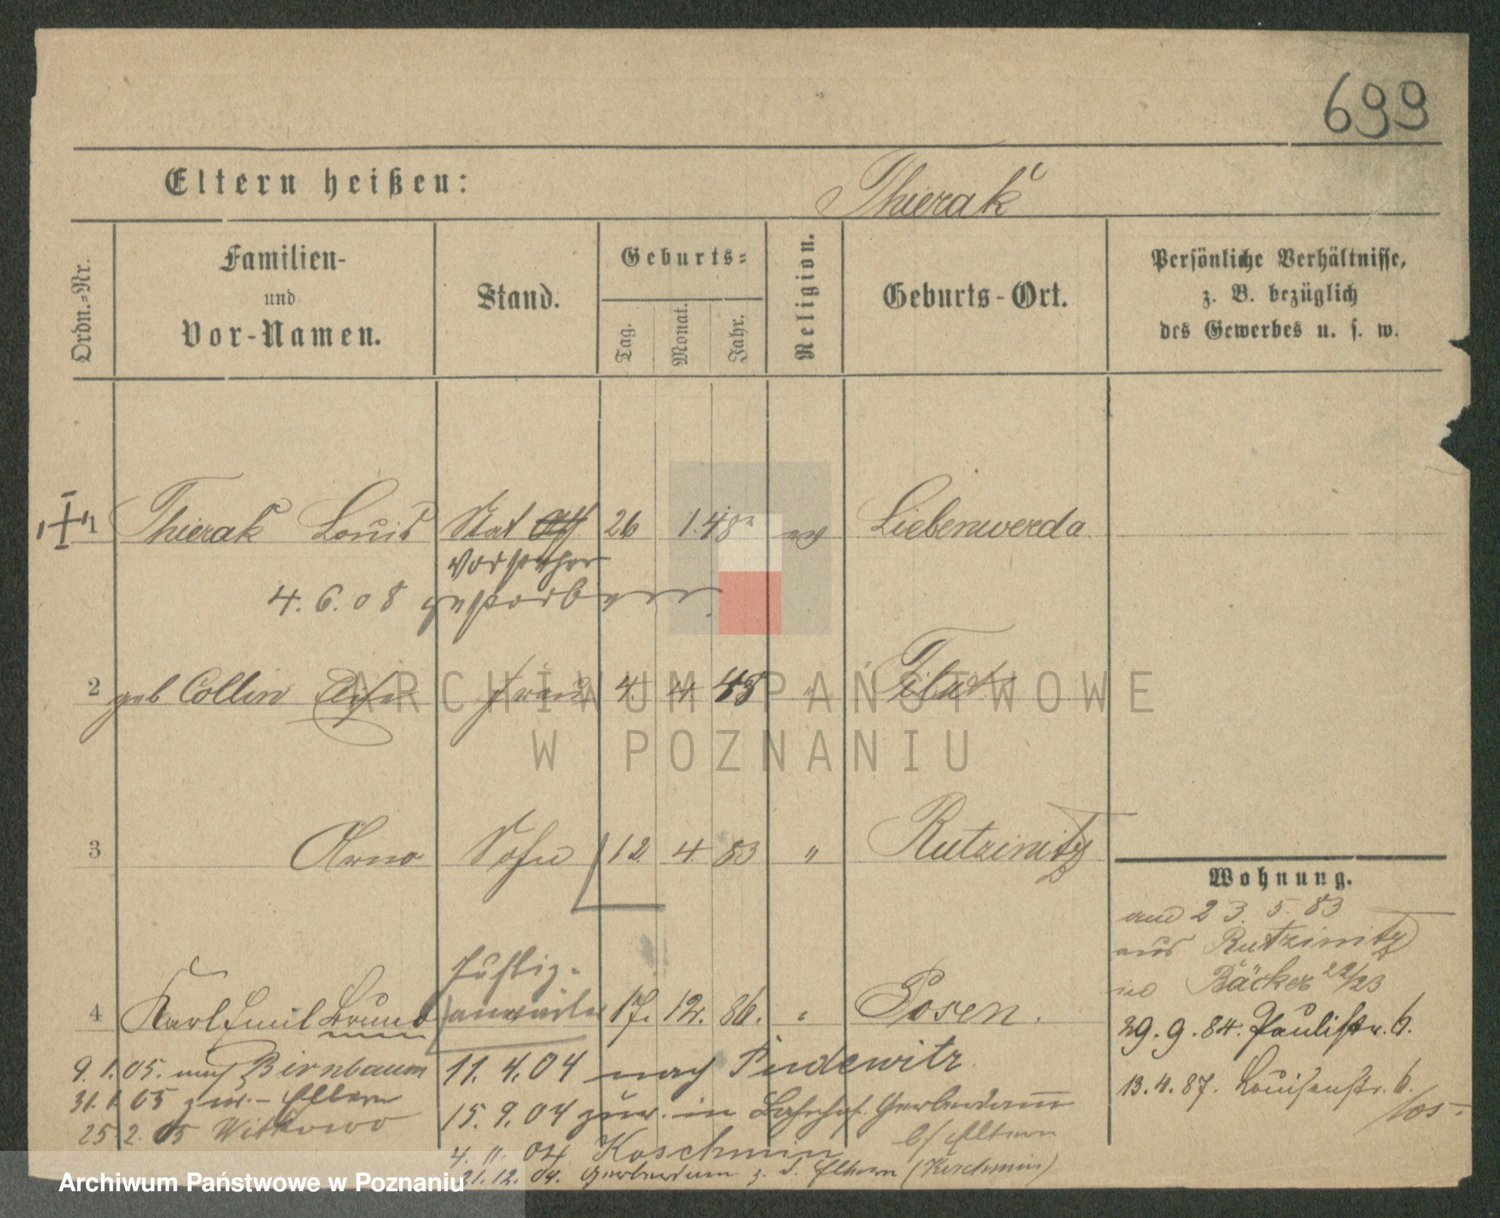 699
Eltern heißen:
Thierak
Ordn.-Nr.
Familien- und Vor-Namen.
Stand.
Geburts-
Tag.
Monat.
Jahr.
Religion.
Geburts-Ort.
Persönliche Verhältnisse,
z. B. bezüglich
des Gewerbes u. s. w.
1 Thierak Louis Stat 26 1. 48 ev Liebenwerda
Vorsteher
4. 6. 08 gestorben
2 geb Collin Frau 4. 4. 48 "
3 Arno Sohn 12 4 83 " Rutzinitz
Wohnung.
am 23. 5. 83
aus Rutzinitz
in Bäcker 22/23
4 Karl Emil Bruno 17. 12. 86. " Posen.
29. 9. 84. Paulistr. 6.
13. 4. 87. Louisenstr. 6.
9. 1. 05. nach Birnbaum
31. 1. 05 zur. - Eltern
25 2. 05 Witkowo
11. 4. 04 nach Pudewitz
15. 9. 04 zur. in Bahnhof Gerberdamm
b/ Eltern
4. 11. 04 Koschmin
31. 12. 04. Gerberdamm z. d. Eltern (Koschmin)
ARCHIWUM PAŃSTWOWE
W POZNANIU
Archiwum Państwowe w Poznaniu